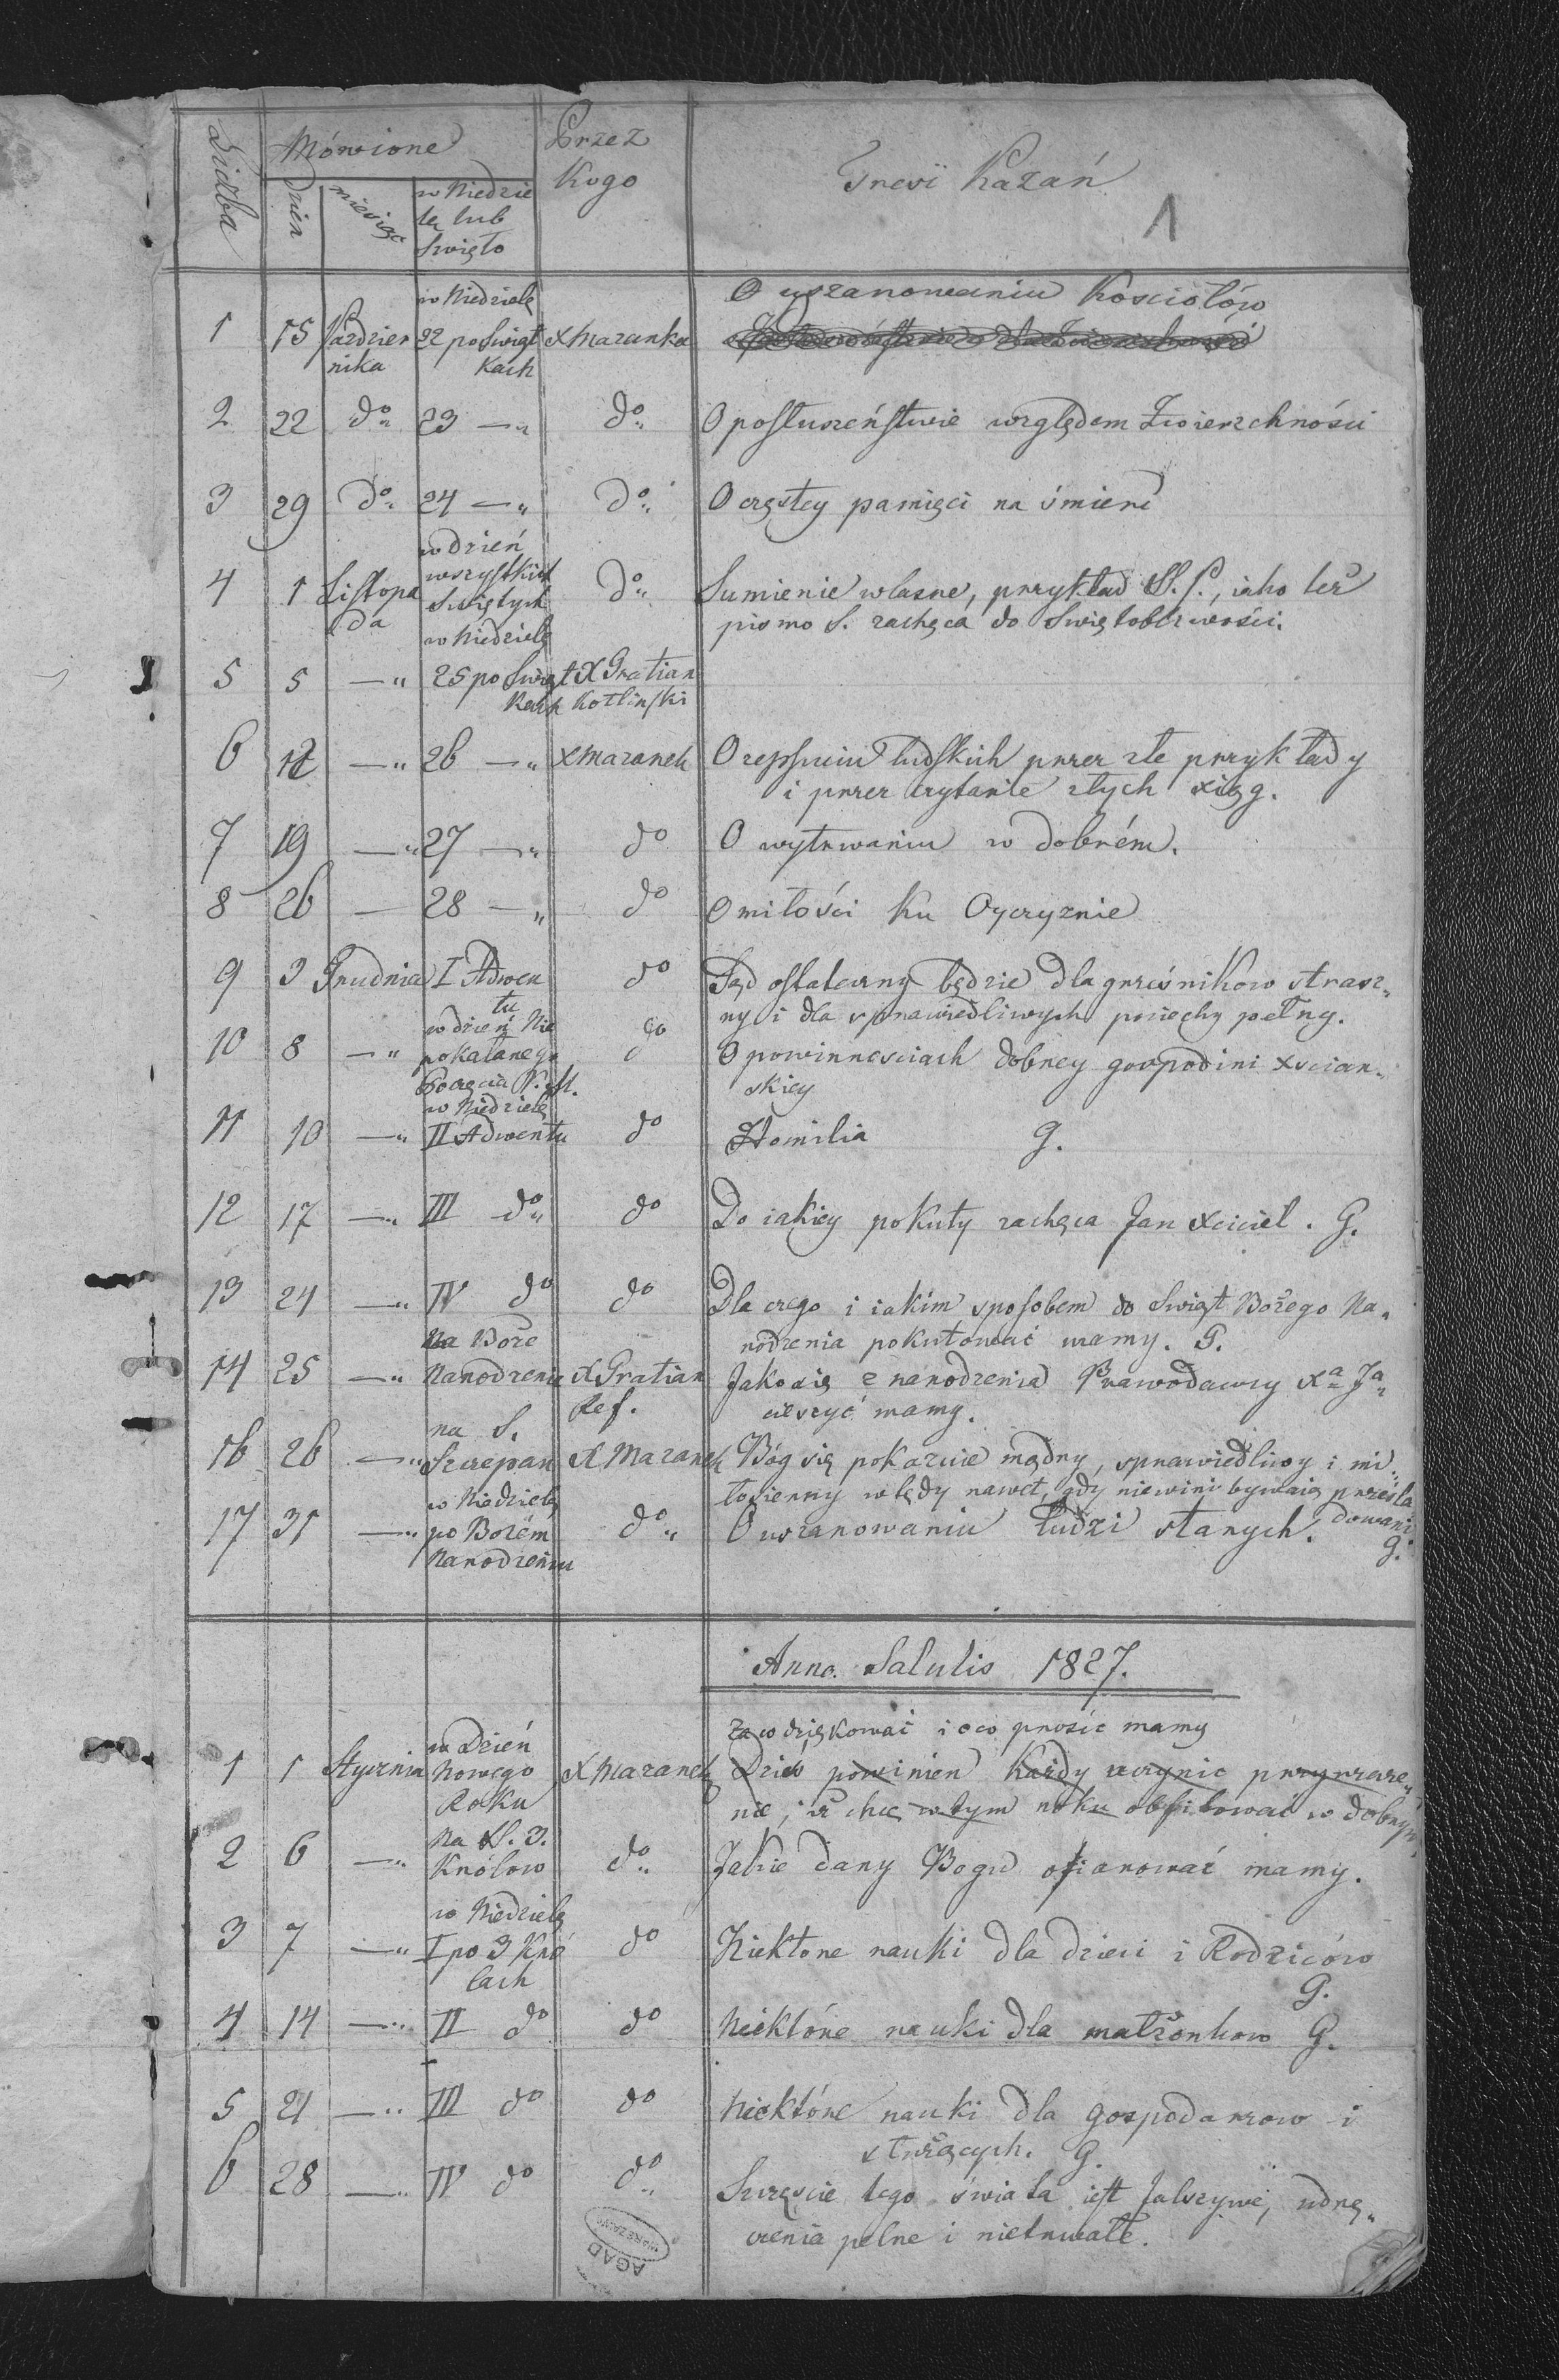 Liczba
Mówione
Przez
Kogo
Treść Kazań
1
Dzień
miesiąc
w Niedzie
lę lub
Święto
w Niedzielę
O uszanowaniu Kosciołów
1 15 Paździer 22 po Świąt X Mazanka
nika kach
2 22 do 23 —" do O posłuszeństwie względem Zwierzchności
3 29 do 24 —" do O częstey pamięci na śmierć
w dzień
4 1 Listopa wszystkich do Sumienie własne, przykład SS. PP., iako też
da Świętych pismo S. zachęca do Świętobliwości.
w Niedzielę
5 5 —" 25 po Świąt X Gratian
kach Kotliński
6 12 —" 26 —" X Mazanek O zepsuciu ludzkich przez złe przykłady
i przez czytanie złych xiąg.
7 19 —" 27 —" do O wytrwaniu w dobrém.
8 26 — 28 —" do O miłości ku Oyczyznie
9 3 Grudnia I Adwen do Sąd ostateczny będzie dla grześnikow strasz„
tu ny i dla sprawiedliwych pociechy pełny.
w dzień Nie
10 8 —" pokalanego do O powinnosciach dobrey gospodini xscian„
Poczęcia N. M. skiey
w Niedzielę
11 10 —" II Adwentu do Homilia G.
12 17 —" III do do Do iakiey pokuty zachęca Jan Xciciel. G.
13 24 —" IV do do Dla czego i iakim sposobem do Swiąt Bożego Na„
na Boże rodzenia pokutować mamy. G.
14 25 —" Narodzenie X Gratian Jako się z narodzenia Prawodawcy Xa Ja
Ref. cieszyć mamy.
na S.
16 26 —" Szczepan X Mazanek Bóg się pokazuie mądry, sprawiedliwy i mi„
w Niedzielę łosierny w tedy nawet, gdy niewini bywaią prześla
17 31 —" po Bożém do O uszanowaniu ludzi starych. dowani
Narodzeniu G.
Anno Salutis 1827.
Za co dziękować i o co prosić mamy
w Dzień
1 1 Stycznia Nowego X Mazanek Dziś powinien każdy uczynic przyrzecze„
Roku nie, iż chcę w tym roku obfitować w dobrym
na S. 3.
2 6 —" Królow do Jakie dary Bogu ofiarować mamy.
w Niedzielę
3 7 —" I po 3 Kró do Niektore nauki dla dzieci i Rodziców
lach G.
4 14 —" II do do Niektóre nauki dla małżonkow G.
5 21 —" III do do Niektóre nauki dla gospodarzow i
służących. G.
6 28 —" IV do do Szczęście tego świata iest fałszywe, udrę„
czenia pełne i nietrwałe.
AGAD
WARSZAWA